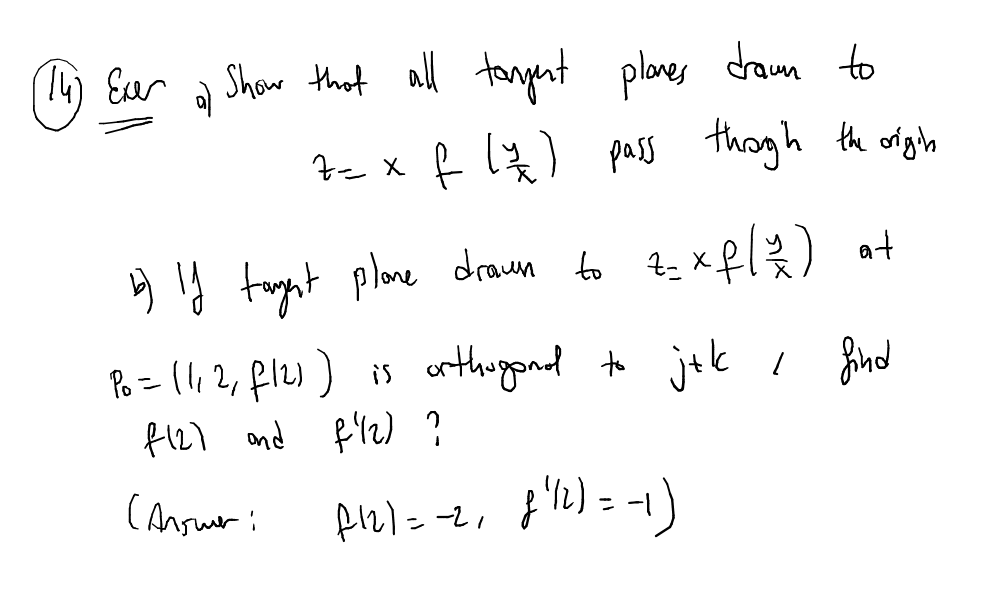 14) Exer a) Show that all tangent planes drawn to
z = x f (y/x) pass through the origin
b) If tangent plane drawn to z = x f(y/x) at
P₀ = (1, 2, f(2)) is orthogonal to j+k, find
f(2) and f'(2) ?
(Answer: f(2) = -2, f'(2) = -1)